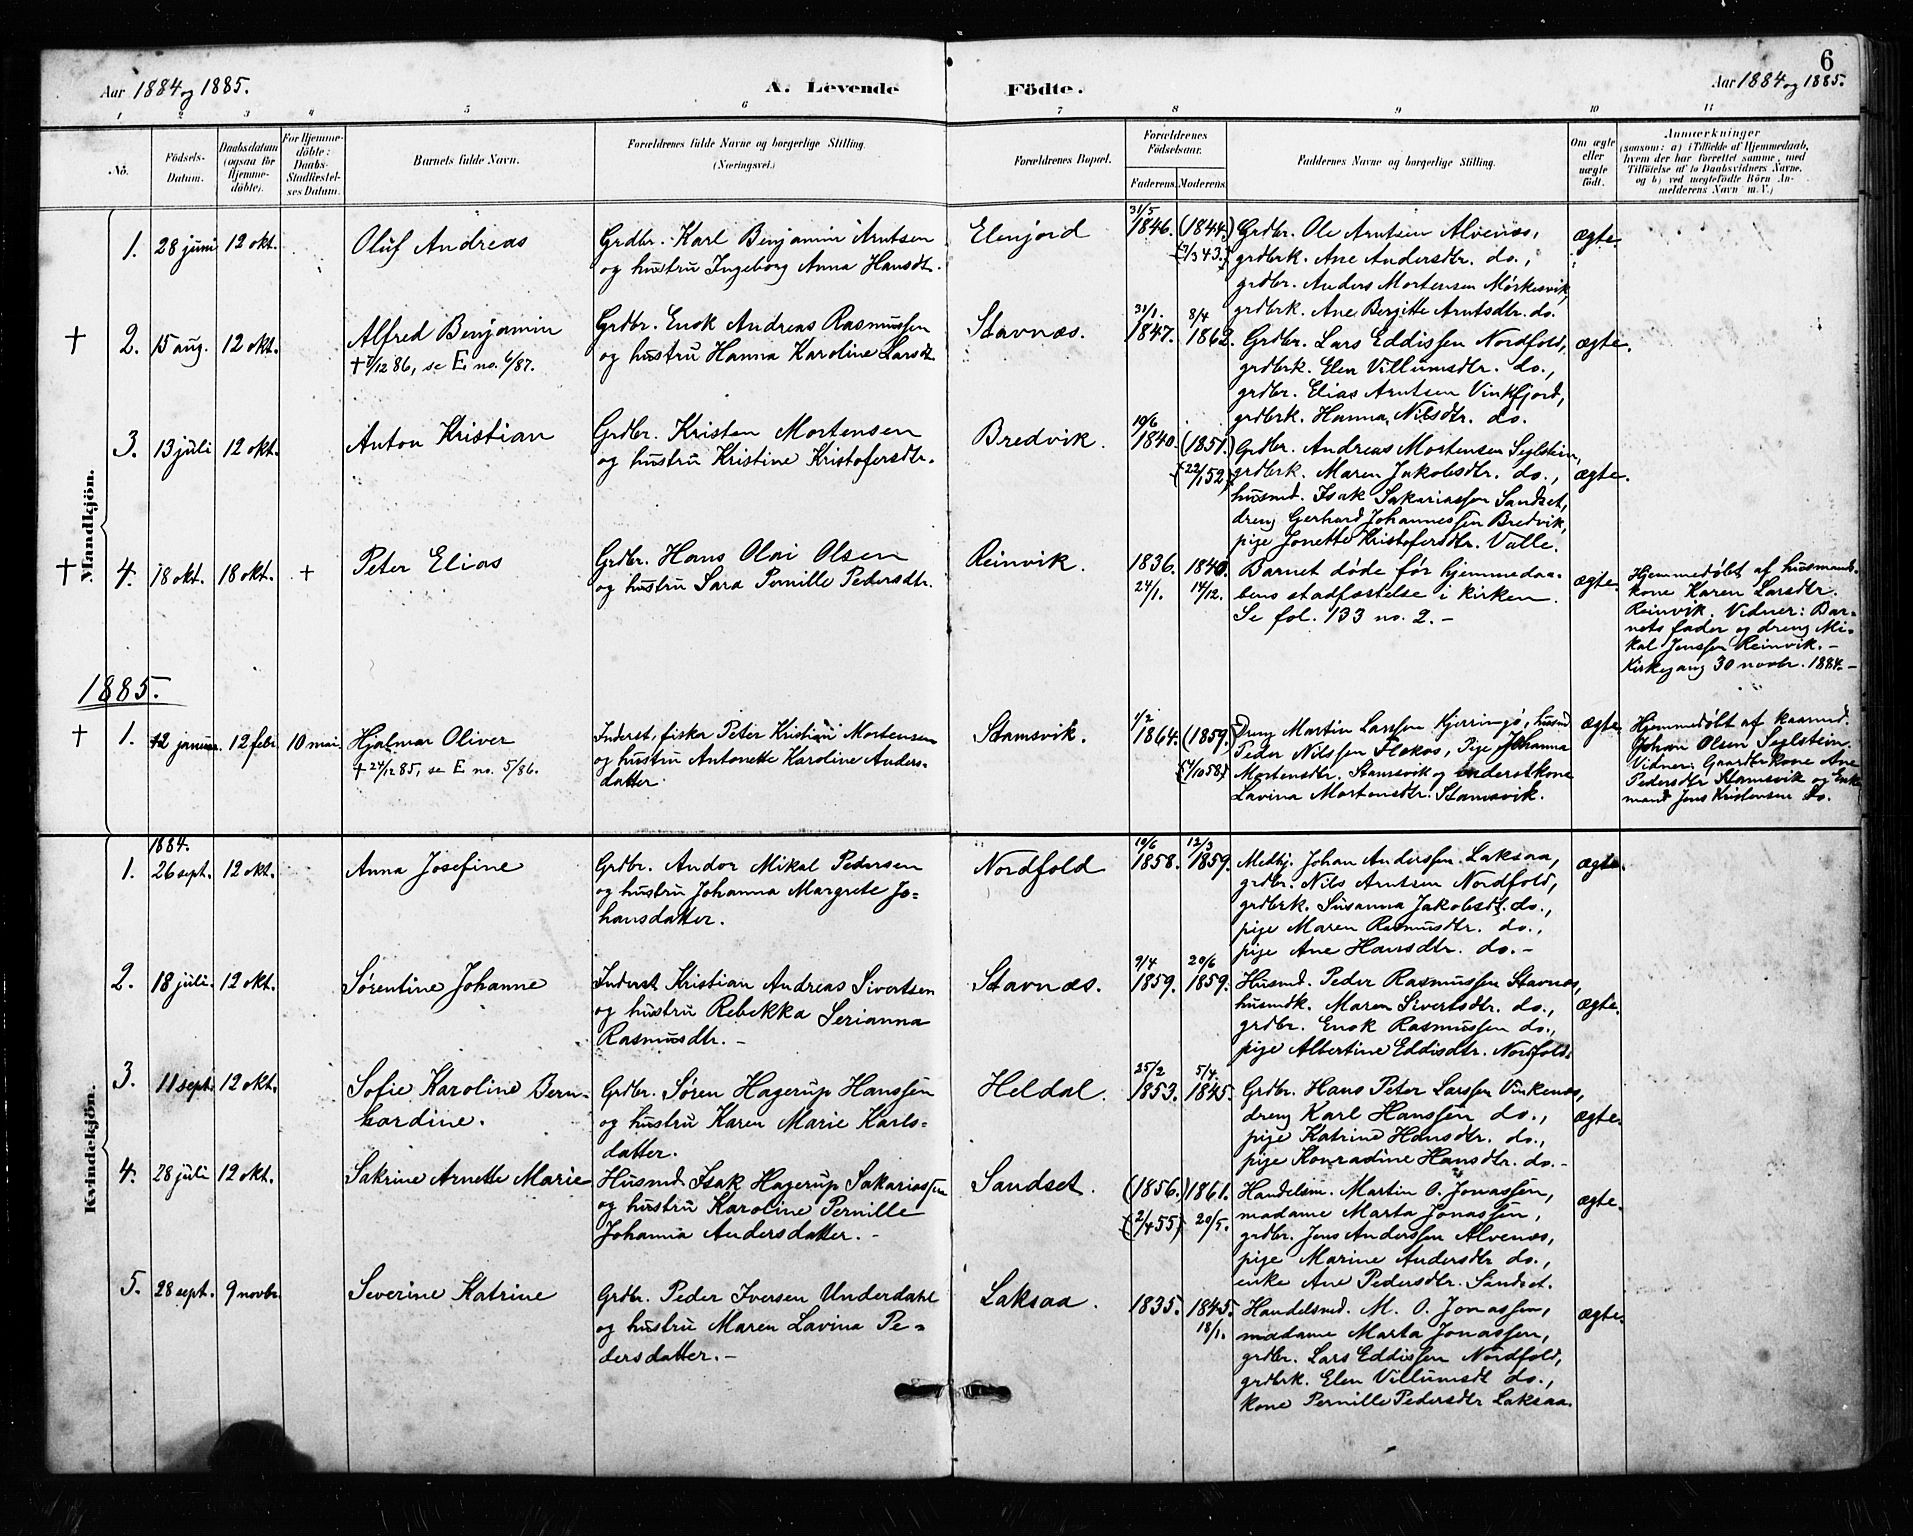 6
Aar 1884 og 1885.
A. Levende Födte.
Aar 1884 og 1885.
1 2 3 4 5 6 7 8 9 10 11
No.
Födsels-Datum.
Daabsdatum (ogsaa for Hjemme-döbte).
For Hjemme-döbte: Daabs-Stadfæstel-ses Datum.
Barnets fulde Navn.
Forældrenes fulde Navne og borgerlige Stilling.
(Næringsvei.)
Forældrenes Bopæl.
Forældrenes Födselsaar.
Faderens. Moderens.
Faddernes Navne og borgerlige Stilling.
Om ægte eller uægte födt.
Anmærkninger
(saasom: a) i Tilfælde af Hjemmedaab, hvem der har forrettet samme, med Tilföielse af to Daabsvidners Navne, og b) ved uægtefödte Börn An-melderens Navn m. V.)
Mandkjön.
1. 28 juni 12 okt. Oluf Andreas
Grdbr. Karl Benjamin Arntsen
og hustru Ingeborg Anna Hansdt.
Elenjord
31/5 1846. (1844.) (7/3 43.)
Grdbr. Ole Arntsen Alvenæs,
grdbrk. Ane Andersdtr. do.,
grdbr. Anders Mortensen Mørkesvik,
grdbrk. Ane Bergitte Arntsdtr. do.
ægte.
† 2. 15 aug. 12 okt. Alfred Benjamin
† 7/12 86, se E no. 6/87.
Grdbr. Enok Andreas Rasmussen
og hustru Hanna Karoline Larsdt.
Stavnæs.
31/1. 1847. 8/4 1862.
Grdbr. Lars Eddissen Nordfold,
grdbrk. Elen Villumsdtr. do.,
grdbr. Elias Arntsen Vinkfjord,
grdbrk. Hanna Nilsdtr. do.
ægte.
3. 13 juli 12 okt. Anton Kristian
Grdbr. Kristen Mortensen
og hustru Kristine Kristofersdtr.
Bredvik.
10/6 1840. (1851.) (22/1 52)
Grdbr. Andreas Mortensen Seglstein,
grdbrk. Maren Jakobsdtr. do.,
husmd. Isak Sakariassen Sandset,
dreng Gerhard Johannessen Bredvik,
pige Jonette Kristofersdtr. Valle.
ægte.
† 4. 18 okt. 18 okt. + Peter Elias
Grdbr. Hans Olai Olsen
og hustru Sara Pernille Pedersdtr.
Reinvik.
1836. 24/1. 1840. 14/12.
Barnet døde før hjemmedaa-
bens stadfæstelse i kirken.
Se fol. 133 no. 2. –
ægte.
Hjemmedøbt af husmands-
kone Karen Larsdtr.
Reinvik. Vidner: Bar-
nets fader og dreng Mi-
kal Jenssen Reinvik. –
Kirkegang 30 novbr. 1884. –
1885.
† 1. 12 januar. 12 febr. 10 mai. Hjalmar Oliver
† 24/12 85, se E no. 5/86.
Inderst, fisker Peter Kristian Mortensen
og hustru Antonette Karoline Anders-
datter.
Stamsvik.
1/2 1864. (1859.) (7/10 58)
Dreng Martin Larssen Kjerringö, husmd
Peder Nilssen Flokos, Pige Johanna
Mortensdtr. Stamsvik og inderstkone
Lavina Mortensdtr. Stamsvik.
ægte.
Hjemmedøbt af kaarmd.
Johan Olsen Seglstein.
Vidner: Gaardbrkone Ane
Pedersdtr Stamsvik og Enke
mand Jens Kristensen do.
Kvindekjön.
1884.
1. 26 sept. 12 okt. Anna Josefine
Grdbr. Andor Mikal Pedersen
og hustru Johanna Margrete Jo-
hansdatter.
Nordfold
10/6 1858. 12/3 1859.
Medhj. Johan Anderssen Laksaa,
grdbr. Nils Arntsen Nordfold,
grdbrk. Susanna Jakobsdt. do.,
pige Maren Rasmusdtr. do.,
pige Ane Hansdtr. do. –
ægte.
2. 18 juli. 12 okt. Sørentine Johanne
Inderst Kristian Andreas Sivertsen
og hustru Rebekka Serianna
Rasmusdtr. –
Stavnæs.
9/4 1859. 20/6 1859.
Husmd. Peder Rasmussen Stavnæs,
husmdk. Maren Sivertsdtr. do.,
grdbr. Enok Rasmussen do.,
pige Albertine Eddisdtr. Nordfold.
ægte.
3. 11 sept. 12 okt. Sofie Karoline Bern-
hardine.
Grdbr. Søren Hagerup Hanssen
og hustru Karen Marie Karls-
datter.
Heldal.
25/2 1853. 5/4. 1845.
Grdbr. Hans Peter Larssen Vinkenæs,
dreng Karl Hanssen do.,
pige Katrine Hansdtr. do.,
pige Konradine Hansdtr. do. –
ægte.
4. 28 juli 12 okt. Sakrine Arnette Marie
Husmd. Isak Hagerup Sakariassen
og hustru Karoline Pernille
Johanna Andersdatter. –
Sandset.
(1856.) (2/4 55) 1861. 20/5.
Handelsm. Martin O. Jonassen,
madame Marta Jonassen,
grdbr. Jens Anderssen Alvenæs,
pige Marine Andersdtr do.,
enke Ane Pedersdtr. Sandset.
ægte.
5. 28 sept. 9 novbr. Severine Katrine
Grdbr. Peder Iversen Underdahl
og hustru Maren Lavina Pe-
dersdatter. –
Laksaa.
1835. 1845. 18/1.
Handelsmd. M. O. Jonassen,
madame Marta Jonassen,
grdbr. Lars Eddissen Nordfold,
grdbrk. Elen Villumsdt do.,
kone Pernille Pedersdtr Laksaa.
ægte.